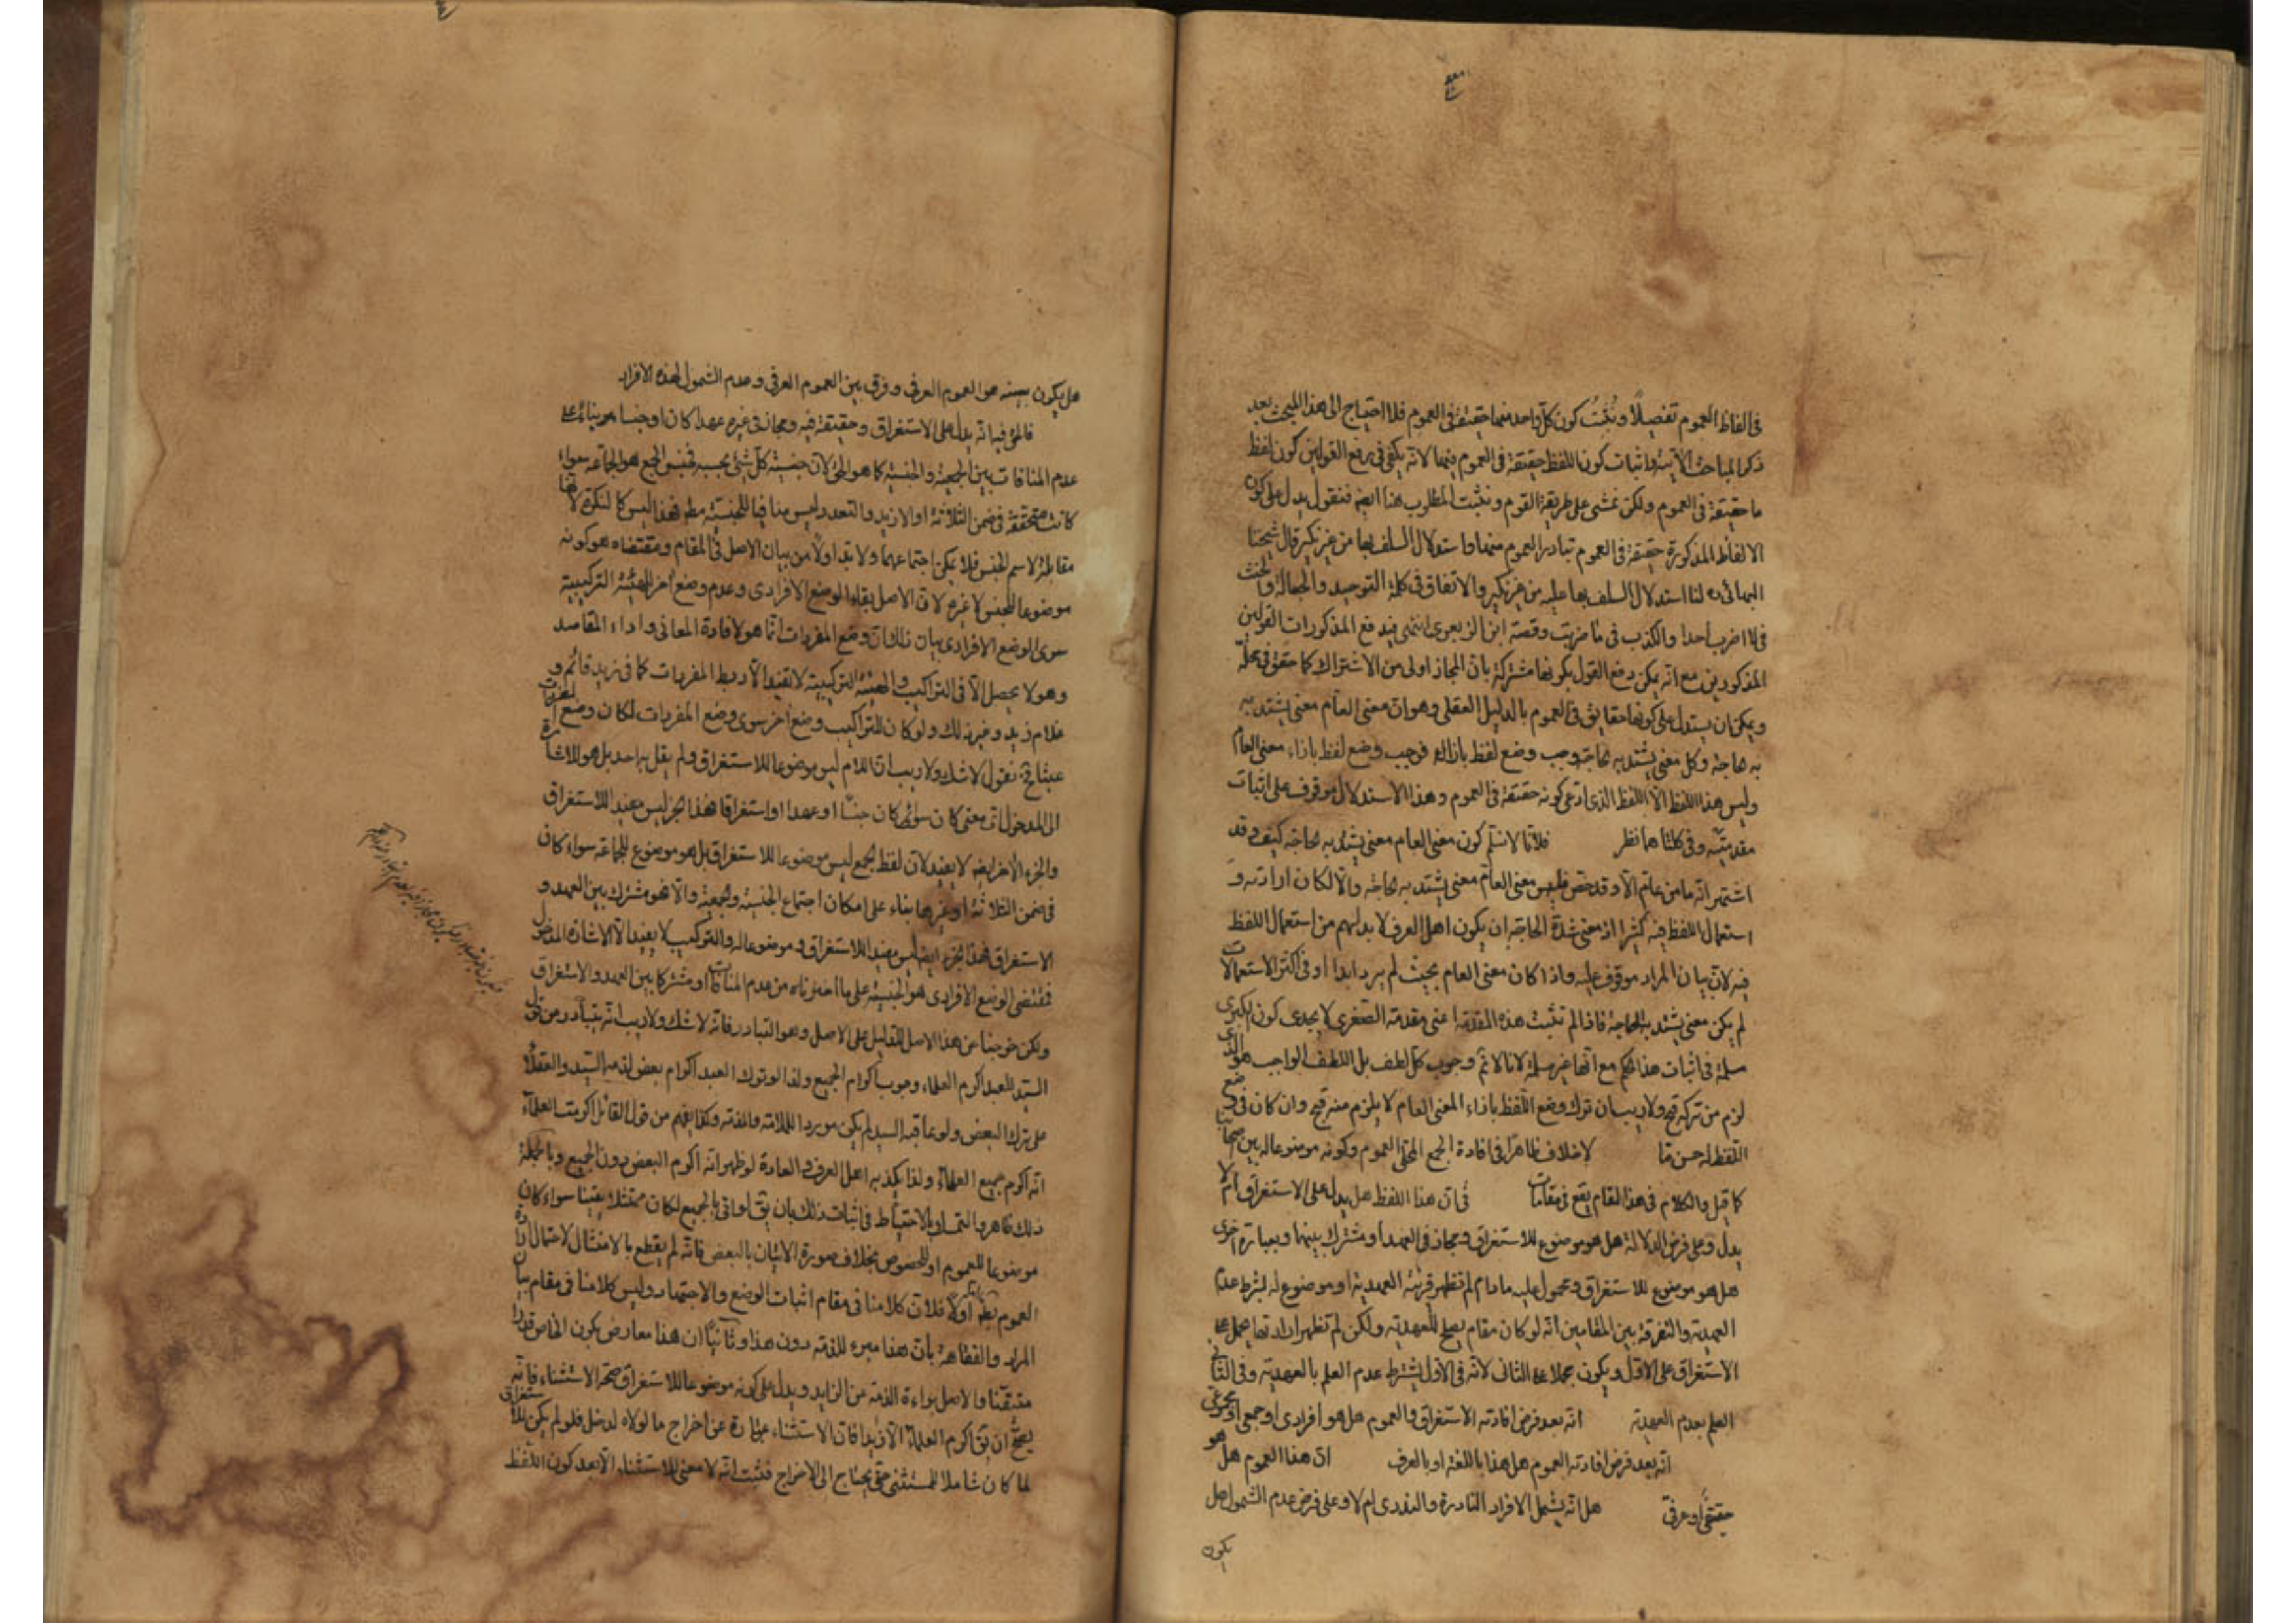 في الفاظ العموم تفصيلًا ونُثبتُ كون كل واحد منها حقيقة في العموم فلا احتياج الى هذا المبحث بعد
ذكر المباحث الآتية واثبات كون اللفظ حقيقة في العموم فيها لانه يكفي في رفع القولين كون لفظ
ما حقيقة في العموم ولكن نمشى على طريقة القوم ونثبت المطلوب هنا ايضا فنقول يدل على كون
الالفاظ المذكورة حقيقة في العموم تبادر العموم منها واستدلال السلف بها من غير نكير قال شيخنا
البهائى ره لنا استدلال السلف بها عليه من غير نكير والاتفاق في كلمة التوحيد والحنث
في لا اضرب احدا والكذب في ما ضربت وقصة ابن الزبعرى انتهى فيندفع المذكورات القولين
المذكورين مع انه يمكن دفع القول بكونها مشتركة بان المجاز اولى من الاشتراك كما حقق في محله
ويمكن ان يستدل على كونها حقايق في العموم بالدليل العقلى وهو ان معنى العام معنى يشتد به
به حاجة وكل معنى يشتد به حاجة وجب وضع لفظ بازائه فوجب وضع لفظ بازاء معنى العام
وليس هذا اللفظ الا اللفظ الذى ادعى كونه حقيقة في العموم وهذا الاستدلال موقوف على اثبات
مقدمتيه وفي كلتاهما نظر فلانا لا نسلم كون معنى العام معنى يشتد به حاجة كيف وقد
اشتهر انه ما من عام الا وقد خص فليس معنى العام معنى يشتد به حاجة والا لكان ارادته و
استعمال اللفظ فيه كثيرا اذ معنى شدة الحاجة ان يكون اهل العرف لا بد لهم من استعمال اللفظ
فيه لان بيان المراد موقوف عليه واذا كان معنى العام بحيث لم يرد ابدا او في اكثر الاستعمالات
لم يكن معنى يشتد به الحاجة فاذا لم تثبت هذه المقدمة اعنى مقدمة الصغرى لا يجدى كون الكبرى
مسلمة في اثبات هذا الحكم مع انها غير مسلمة لانا لا نم وجوب كل لطف بل اللطف الواجب هو الذى
لزم من تركه قبح ولا ريب ان ترك وضع اللفظ بازاء المعنى العام لا يلزم منه قبح وان كان في وضع
اللفظ له حسن ما لا خلاف ظاهرا في افادة الجمع المحلى العموم وكونه موضوعا له بين اصحابنا
كما قيل والكلام في هذا المقام يقع في مقامات في ان هذا اللفظ هل يدل على الاستغراق ام لا
يدل وعلى فرض الدلالة هل هو موضوع للاستغراق ومجاز في العهد او مشترك بينهما وبعبارة اخرى
هل هو موضوع للاستغراق ومحمول عليه ما دام لم تظهر قرينة العهدية او موضوع له بشرط عدم
العهدية والتفرقة بين المقامين انه لو كان مقام يصلح للعهدية ولكن لم تظهر ارادتها يحمل على
الاستغراق على الاول ويكون مجملا على الثانى لانه في الاول يشترط عدم العلم بالعهدية وفى الثانى
العلم بعدم العهدية انه بعد فرض افادته الاستغراق والعموم هل هو افرادى او جمعى او مجموعى
انه بعد فرض افادته العموم هل هذا باللغة او بالعرف ان هذا العموم هل هو
حقيقى او عرفى هل انه يشمل الافراد النادرة والنقدى ام لا وعلى فرض عدم الشمول هل
يكون
هل يكون بعينه هو العموم العرفى وفرق بين العموم العرفى وعدم الشمول لهذه الافراد
فالحق فيه انه يدل على الاستغراق وحقيقة فيه ومجاز في غيره عهدا كان او جنسا هو بناءً على
عدم المنافات بين الجمعية والجنسية كما هو الحق لان جنسية كل شئ بحسبه فجنس الجمع هو الجماعة سواء
كانت متحققة في ضمن الثلاثة او الازيد والتعدد ليس منافيا للجنسية مطلقا فهذا ليس كالنكرة لانها
مقابلة لاسم الجنس فلا يمكن اجتماعهما ولا بد اولًا من بيان الاصل في المقام ومقتضاه هو كونه
موضوعا للجنس لا غيره لان الاصل بقاء الوضع الافرادى وعدم وضع آخر للهيئة التركيبية
سوى الوضع الافرادى بيان ذلك ان وضع المفردات انما هو لافادة المعانى واداء المقاصد
وهو لا يحصل الا في التراكيب والهيئة التركيبية لا تفيد الا ربط المفردات كما في زيد قائم و
غلام زيد وغير ذلك ولو كان للتراكيب وضع اخر سوى وضع المفردات لكان وضع المفردات
عبثا فح نقول لا شك ولا ريب ان اللام ليس موضوعا للاستغراق ولم يقل به احد بل هو للاشارة
الى المدخول اى معنى كان سواء كان جنسًا او عهدا او استغراقا فهذا الجزء ليس مفيدا للاستغراق
والجزء الآخر ايضا لا يفيد لان لفظ الجمع ليس موضوعا للاستغراق بل هو موضوع للجماعة سواء كان
في ضمن الثلاثة او غيرها بناء على امكان اجتماع الجنسية والجمعية والا فهو مشترك بين العهد و
الاستغراق فهذا الجزء ايضا ليس مفيدا للاستغراق وموضوعا له والتركيب لا يفيد الا الاشارة المدخول
فمقتضى الوضع الافرادى هو الجنسية على ما اخترناه من عدم المنافات او مشتركا بين العهد والاستغراق
ولكن خرجنا عن هذا الاصل للدليل على الاصل وهو التبادر فانه لا شك ولا ريب انه يتبادر من قول
السيد للعبد اكرم العلماء وجوب اكرام الجميع ولذا لو ترك العبد اكرام بعض لذمه السيد والعقلاء
على ترك البعض ولو عاقبه السيد لم يكن موردا للملامة والمذمة وكذا يفهم من قول القائل اكرمت العلماء
انه اكرم جميع العلماء ولذا يكذبه اهل العرف والعادة لو ظهر انه اكرم البعض دون الجميع وبالجملة
ذلك ظاهر والتمسك بالاحتياط في اثبات ذلك بان يق لو اتى بالجميع لكان ممتثلا يقينا سواء كان
موضوعا للعموم او للخصوص بخلاف صورة الاتيان بالبعض فانه لم يقطع بالامتثال لاحتمال ارادة
العموم اولا فلان كلامنا في مقام اثبات الوضع والاجتهاد وليس كلامنا في مقام بيان
المراد والفقاهة بان هذا مبرء للذمة دون هذا وثانيًا ان هذا معارض بكون الخاص قدرا
متيقنا والاصل براءة الذمة عن الزايد ويدل على كونه موضوعا للاستغراق صحة الاستثناء فانه
يصح ان يق اكرم العلماء الا زيدا فان الاستثناء عبارة عن اخراج ما لولاه لدخل فلو لم يكن للاستغراق
لما كان شاملا للمستثنى حتى يحتاج الى الاخراج فثبت انه لا معنى للاستثناء الا بعد كون اللفظ